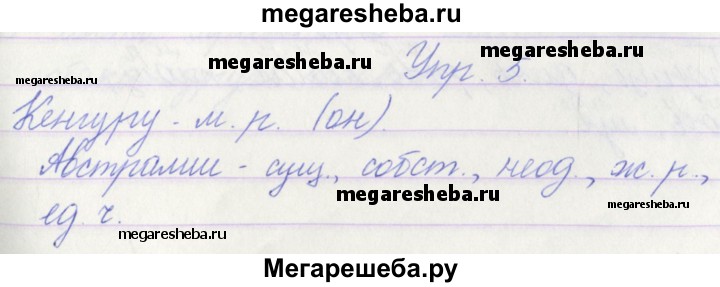 megaresheba.ru
megaresheba.ru
megaresheba.ru
Упр. 5.
megaresheba.ru
Кенгуру - м. р. (он).
Австралии - сущ., собст., неод., ж. р.,
megaresheba.ru
ед. ч.
megaresheba.ru
megaresheba.ru
Мегарешеба.ру